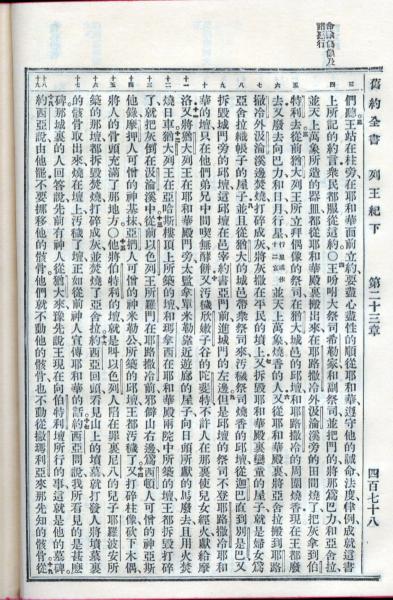 舊約全書　列王紀下　第二十三章　四百七十八
們聽王站在柱旁在耶和華面前立約要盡心盡性的順從耶和華遵守他的誡命法度律例成就這書
上所記的約言衆民都服從這約〇王吩咐大祭司希勒家和副祭司並把門的將那爲巴力和亞舍拉
並天上萬象所造的器皿都從耶和華殿裏搬出來在耶路撒冷外汲淪溪旁的田間燒了把灰拿到伯
特利去從前猶大列王所立拜偶像的祭司在猶大城邑的邱壇和耶路撒冷的周圍燒香現在王都廢
去又廢去向巴力和日月行星行星或作十二宮並天上萬象燒香的人又從耶和華殿裏將亞舍拉搬到耶路
撒冷外汲淪溪邊焚燒打碎成灰將灰撒在平民的墳上又拆毀耶和華殿裏孌童的屋子就是婦女爲
亞舍拉織帳子的屋子並且從猶大的城邑帶衆祭司來汚穢祭司燒香的邱壇從迦巴直到別是巴又
拆毀城門旁的邱壇這邱壇在邑宰約書亞門前進城門的左邊但是邱壇的祭司不登耶路撒冷耶和
華的壇只在他們弟兄中間喫無酵餅又汚穢欣嫩子谷的陀斐特不許人在那裏使兒女經火獻給摩
洛又將猶大列王在耶和華殿門旁太監拿單米勒靠近遊廊的屋子向日頭所獻的馬廢去且用火焚
燒日車猶大列王在亞哈斯樓頂上所築的壇和瑪拿西在耶和華殿兩院中所築的壇王都拆毀打碎
了就把灰倒在汲淪溪中從前以色列王所羅門在耶路撒冷前邪僻山右邊爲西頓人可憎的神亞斯
他錄摩押人可憎的神基抹亞捫人可憎的神米勒公所築的邱壇王都汚穢了又打碎柱像砍下木偶
將人的骨頭充滿了那地方〇他將伯特利的壇就是叫以色列人陷在罪裏尼八的兒子耶羅波安所
築的那壇都拆毀焚燒打碎成灰並焚燒了亞舍拉約西亞回頭看見山上的墳墓就打發人將墳墓裏
的骸骨取出來燒在壇上汚穢了壇正如從前神人宣傳耶和華的話約西亞問說我所看見的是甚麼
碑那城裏的人回答說先前有神人從猶大來豫先說王現在向伯特利壇所行的事這就是他的墓碑
約西亞說由他罷不要挪移他的骸骨他們就不動他的骸骨也不動從撒瑪利亞來那先知的骸骨從